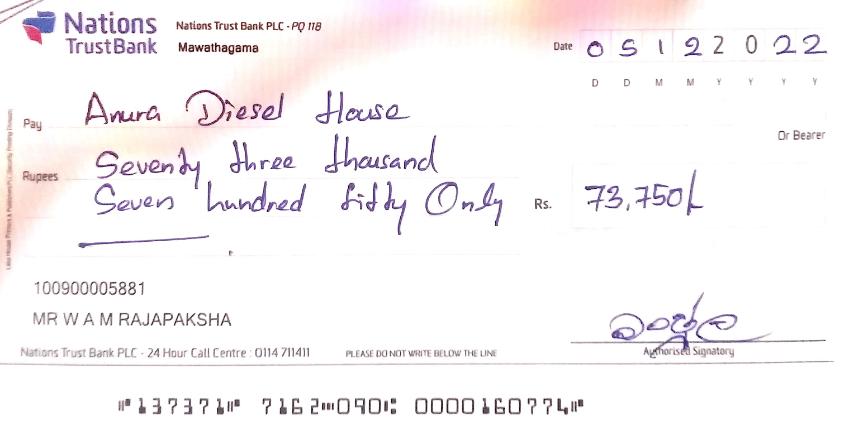 Nations TrustBank
Nations Trust Bank PLC - PQ 118
Mawathagama
Date 0 5 1 2 2 0 2 2
D D M M Y Y Y Y
Pay Anura Diesel House
Or Bearer
Rupees Seventy three thousand
Seven hundred fifty Only Rs. 73,750/-
100900005881
MR W A M RAJAPAKSHA
Authorised Signatory
Nations Trust Bank PLC - 24 Hour Call Centre : 0114 711411 PLEASE DO NOT WRITE BELOW THE LINE
⑈137371⑈ 7162⑉090⑆ 0000160774⑈